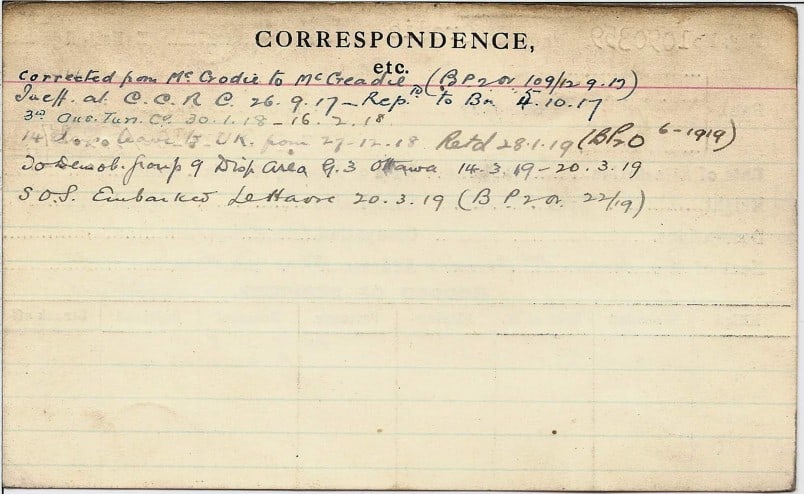 CORRESPONDENCE,
etc.
Corrected from McCrodie to McCreadie (B P 2 or 109/12.9.17)
at C. C. R C. 26.9.17 - Rep. to Bn 4.10.17
3rd Aus. Tun. Co 30.1.18 - 16.2.18
14 leave to UK. from 27-12-18 Retd 28.1.19 (BP2O 6-1919)
To Demob. Group 9 Disp. Area G.3 Ottawa 14.3.19 - 20.3.19
S.O.S. Embarked Le Havre 20.3.19 (B P 2 or 22/19)